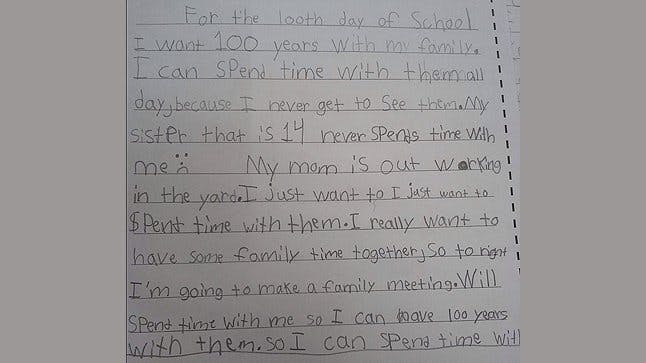 For the 100th day of School
I want 100 years with my family.
I can spend time with them all
day, because I never get to see them. My
sister that is 14 never spends time with
me :( My mom is out working
in the yard. I just want to I just want to
spent time with them. I really want to
have some family time together, So to right
I'm going to make a family meeting. Will
spend time with me so I can have 100 years
with them. so I can spend time with